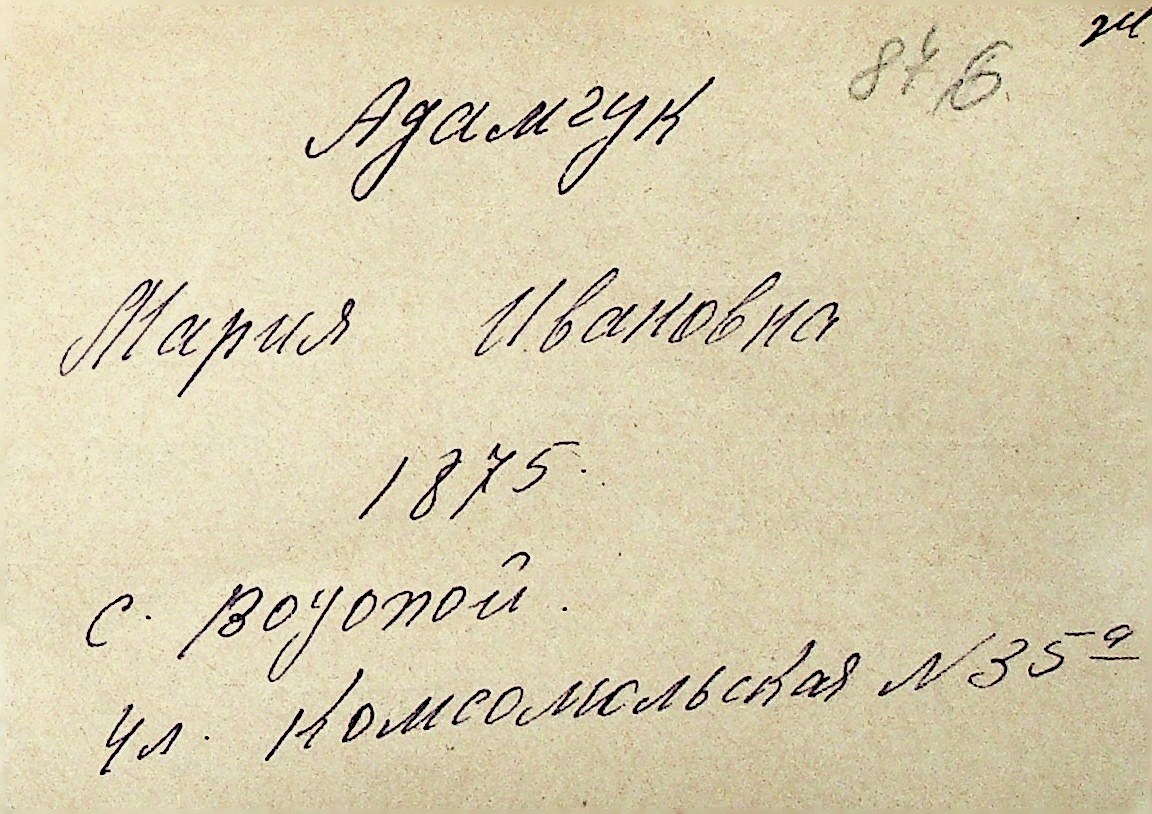 84/6
Адамчук
Мария Ивановна
1875.
с. Водопой.
ул. Комсомольская №35а